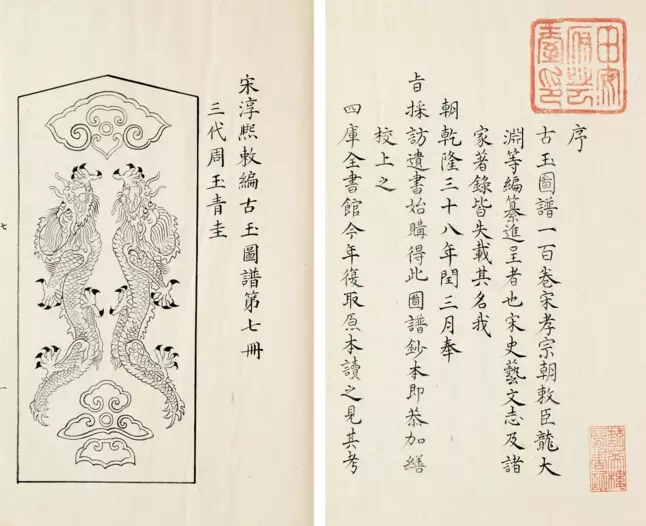 序
古玉圖譜一百卷宋孝宗朝敕臣龍大
淵等編纂進呈者也宋史藝文志及諸
家著錄皆失載其名我
朝乾隆三十八年閏三月奉
旨採訪遺書始購得此圖譜鈔本即恭加繕
校上之
四庫全書館今年復取原本讀之見其考
宋淳熙敕編古玉圖譜第七冊
三代周玉青圭
七
一